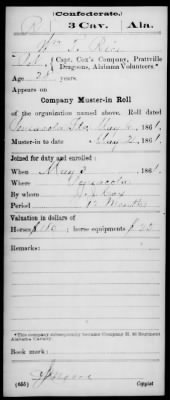 (Confederate.)
R 3 Cav. Ala.
Wm. T. Rice
Pvt., Capt. Cox's Company, Prattville
Dragoons, Alabama Volunteers.*
Age 28 years.
Appears on
Company Muster-in Roll
of the organization named above. Roll dated
Pensacola Fla. May 2, 1861.
Muster-in to date May 2, 1861.
Joined for duty and enrolled:
When May 3, 1861.
Where Pensacola
By whom Cox
Period 12 Months
Valuation in dollars of
Horse, $ ; horse equipments, $
Remarks:
*This company subsequently became Company H, 3d Regiment
Alabama Cavalry.
Book mark:
(655) Copyist